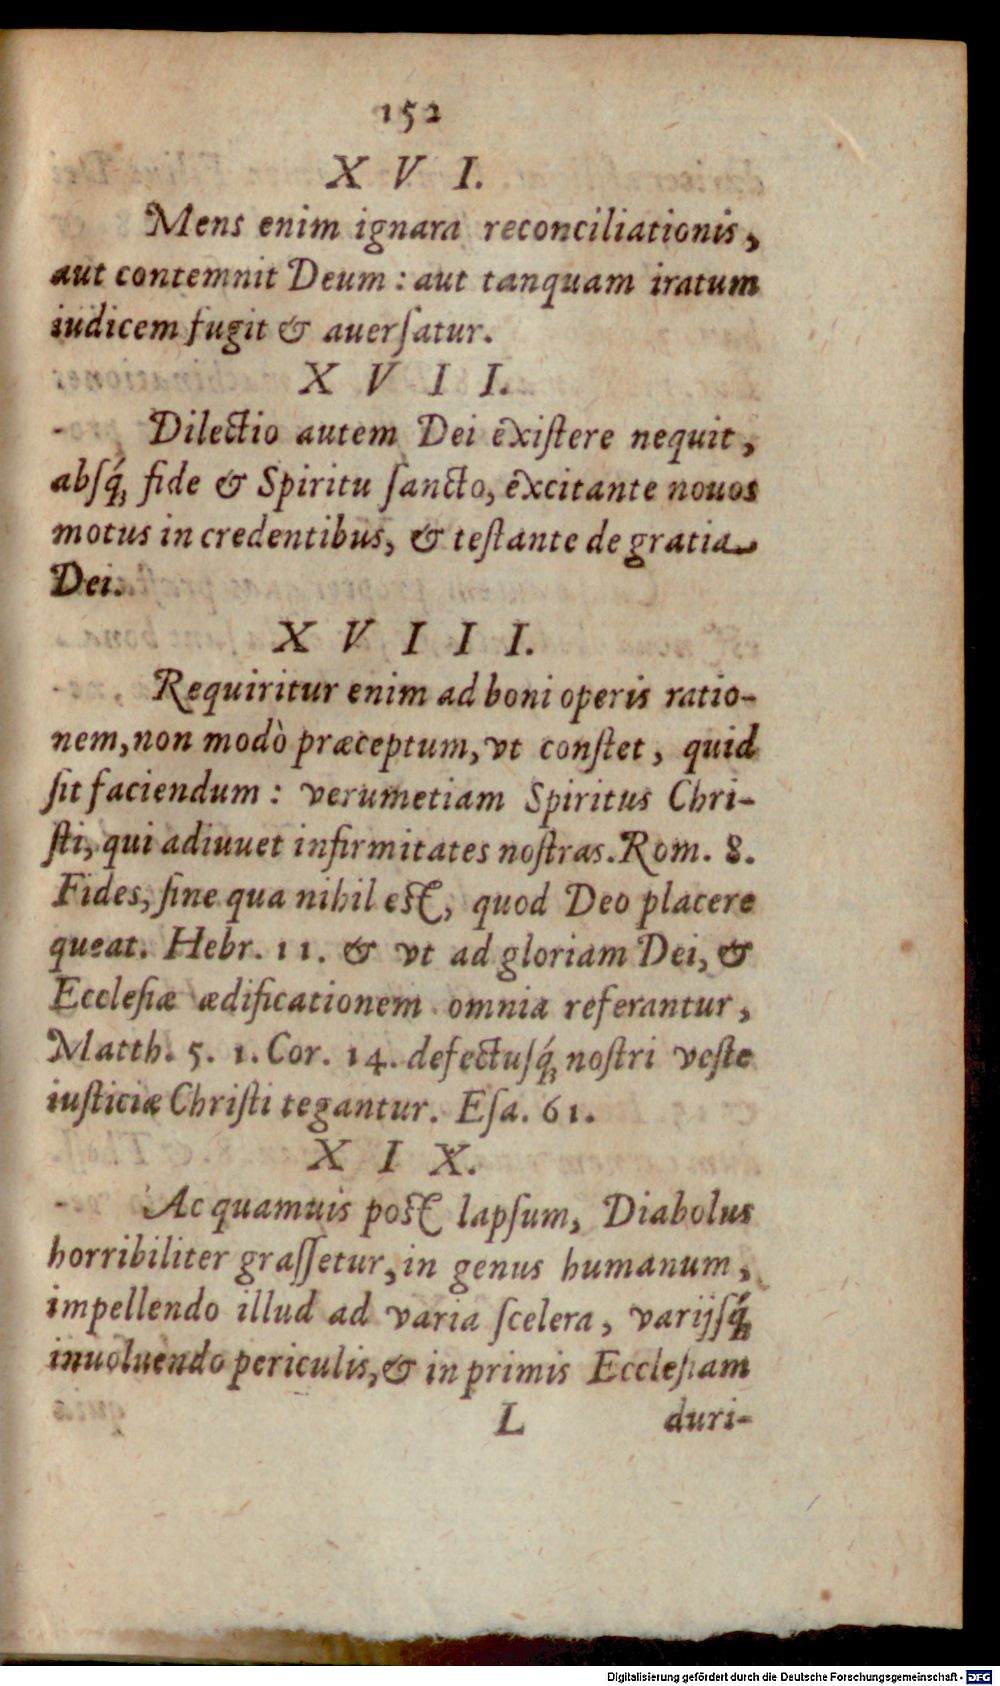 152
X V I.
Mens enim ignara reconciliationis,
aut contemnit Deum: aut tanquam iratum
iudicem fugit & auerſatur.
X V I I.
Dilectio autem Dei existere nequit,
absq́; fide & Spiritu ſancto, excitante nouos
motus in credentibus, & teſtante de gratia
Dei.
X V I I I.
Requiritur enim ad boni operis ratio-
nem, non modò præceptum, vt conſtet, quid
ſit faciendum: verumetiam Spiritus Chri-
ſti, qui adiuuet infirmitates noſtras. Rom. 8.
Fides, ſine qua nihil est, quod Deo placere
queat. Hebr. 11. & vt ad gloriam Dei, &
Eccleſiæ ædificationem omnia referantur,
Matth. 5. 1. Cor. 14. defectuſq́; noſtri veſte
iuſticiæ Chriſti tegantur. Eſa. 61.
X I X.
Ac quamuis post lapſum, Diabolus
horribiliter graſſetur, in genus humanum,
impellendo illud ad varia ſcelera, varijſq́;
inuoluendo periculis, & in primis Eccleſiam
L duri-
Digitalisierung gefördert durch die Deutsche Forschungsgemeinschaft - DFG